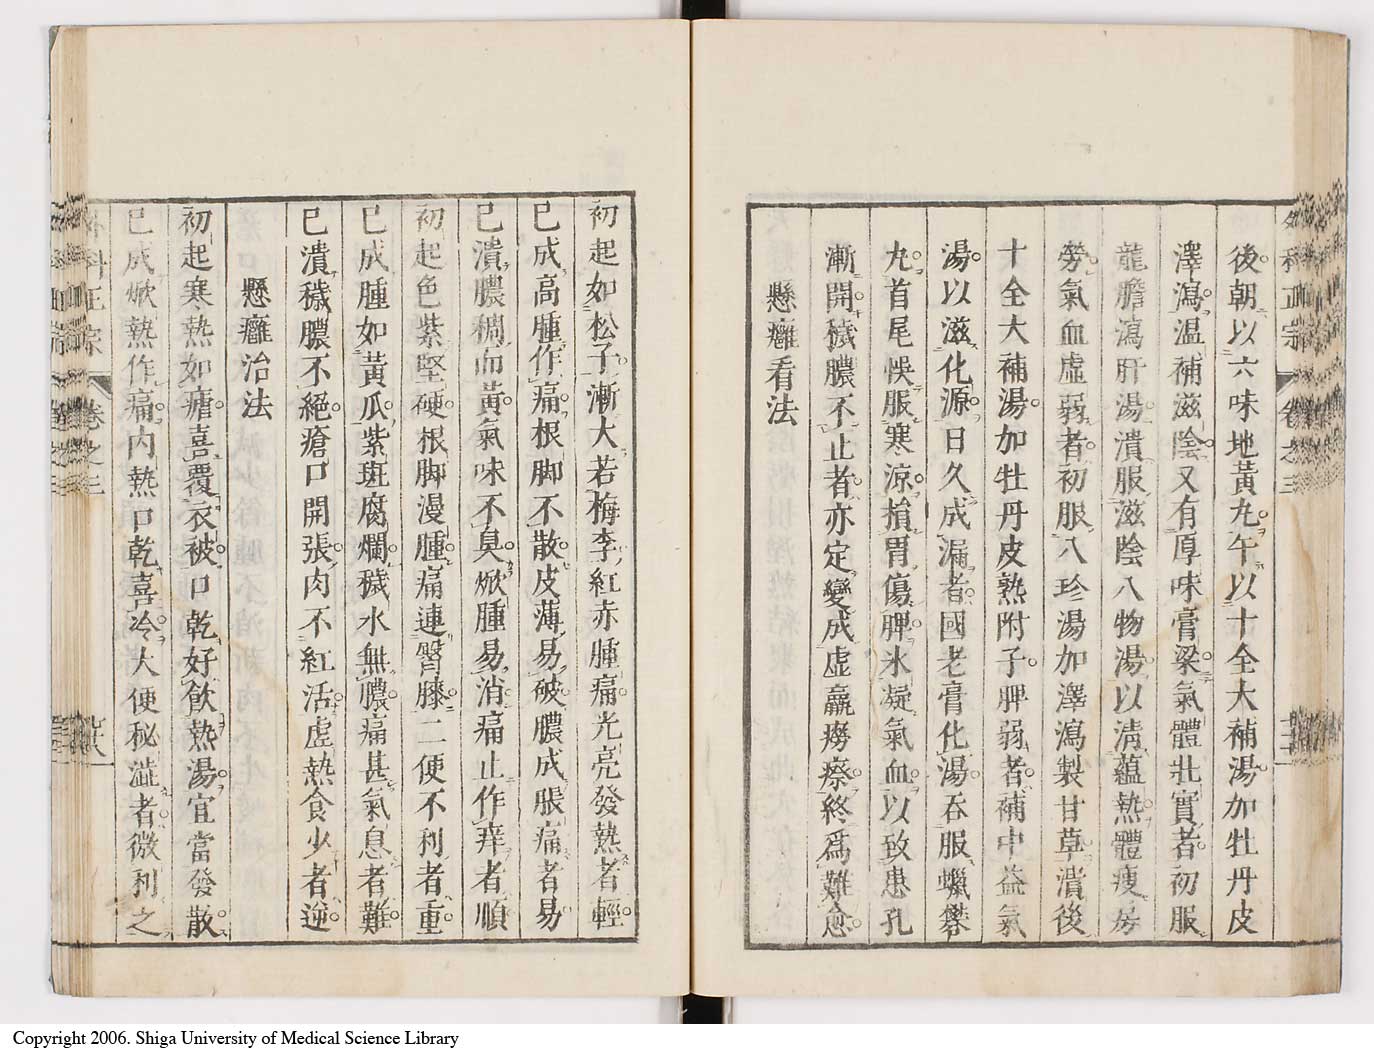 外科正宗 卷之三
後朝以六味地黃丸午以十全大補湯加牡丹皮
澤瀉溫補滋陰又有厚味膏粱氣體壯實者初服
龍膽瀉肝湯潰服滋陰八物湯以淸蘊熱體瘦房
勞氣血虛弱者初服八珍湯加澤瀉製甘草潰後
十全大補湯加牡丹皮熟附子脾弱者補中益氣
湯以滋化源日久成漏者國老膏化湯吞服蠟礬
丸首尾悞服寒涼損胃傷脾氷凝氣血以致患孔
漸開穢膿不止者亦定變成虛羸癆瘵終爲難愈
懸癰看法
初起如松子漸大若梅李紅赤腫痛光亮發熱者輕
已成高腫作痛根脚不散皮薄易破膿成脹痛者易
已潰膿稠而黃氣味不臭焮腫易消痛止作痒者順
初起色紫堅硬根脚漫腫痛連臀膝二便不利者重
已成腫如黃瓜紫斑腐爛穢水無膿痛甚氣息者難
已潰穢膿不絕瘡口開張肉不紅活虛熱食少者逆
懸癰治法
初起寒熱如瘧喜覆衣被口乾好飮熱湯宜當發散
已成焮熱作痛內熱口乾喜冷大便秘澁者微利之
卷之三
Copyright 2006. Shiga University of Medical Science Library